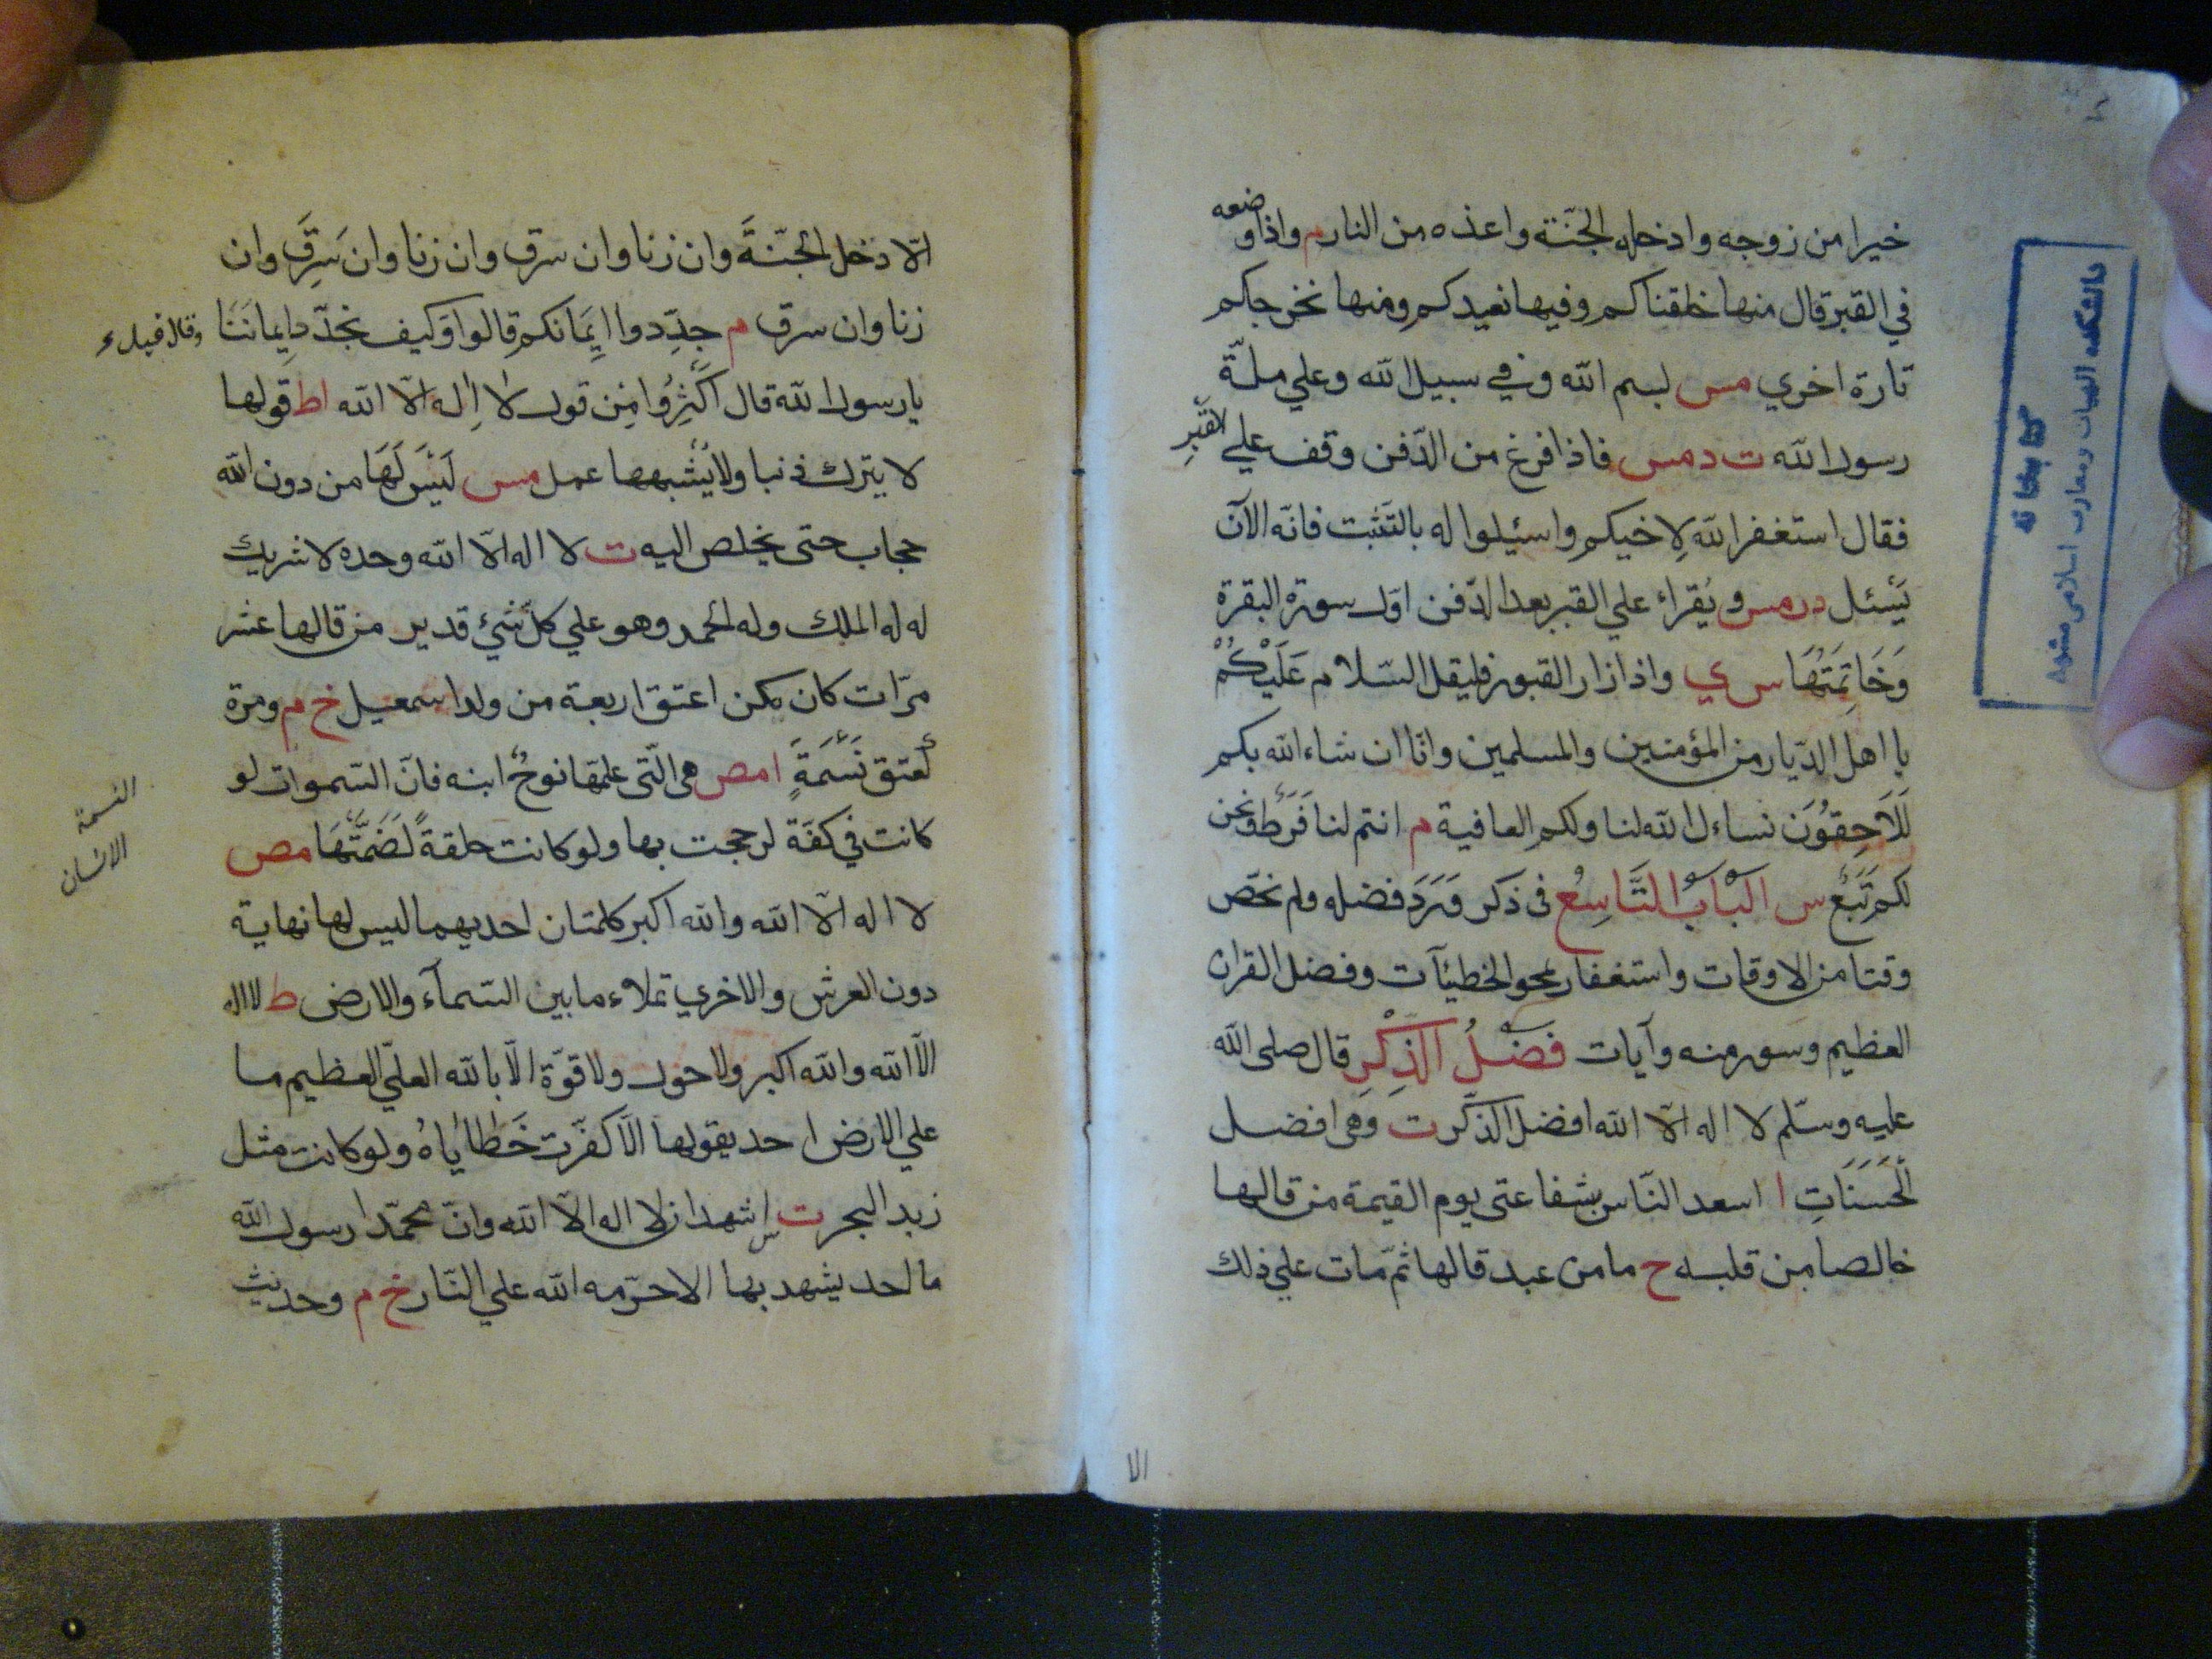 خيرا من زوجه وادخله الجنّة واعذه من النار م واذا وضعه
في القبر قال منها خلقناكم وفيها نعيدكم ومنها نخرجكم
تارة اخري مس بسم الله وفي سبيل الله وعلي ملّة
رسول الله ت د مس فاذا فرغ من الدّفن وقف علي القبرِ
فقال استغفرالله لِاخيكم واسئيلوا له بالتَثبت فانّه الآن
يَسْئل د ر مس و يُقراء علي القبر بعد الدّفن اوّل سورة البقرة
وَخَاتِمَتَهَا س ي واذا زار القبور فليقل السّلام عَلَيْكُمْ
يا اهل الدّيار من المؤمنين والمسلمين وانّا ان شاء الله بكم
لَلَاحِقوُنَ نساءل الله لنا ولكم العافية م انتم لنا فَرَطٌ ونحن
لكم تَبَعٌ س الَبابُ التَّاسِعُ فى ذكر وَرَدَ فضله ولم نخصّ
وقتا من الاوقات واستغفار يمحو الخطيئآت وفضل القران
العظيم وسور منه وآيات فَضْلُ الذِكْرِ قال صلى الله
عليه وسلّم لا اله الّا الله افضل الذّكر ت وَهى افضل
الْحَسَنَاتِ ا اسعد النّاس بشفاعتى يوم القيمة من قالها
خالصا مِن قلبه ح ما من عبد قالها ثمّ مات علي ذلك
الا
دانشكده الهيات ومعارف اسلامى مشهد
كتابخانه
الّا دخل الجنّةَ وان زنا وان سرق وان زنا وان سَرِقَ وان
زنا وان سرق م جدِّدوا اِيِمَانكم قالوا وَكيف نجدّد اِيماننَا
يا رسول الله قال اَكْثِرُوا مِن قول لا اِله الّا الله ا ط قولها
لا يترك ذنبا ولا يُشْبهها عمل مس لَيْسَ لَهَا من دون الله
حجاب حتى يخلص اليه ت لا اله الّا الله وحده لا شريك
له له الملك وله الحمد وهو علي كلّ شئ قدير من قالها عشر
مرّات كان كمن اعتق اربعة من ولد اسمعيل خ م ومرة
كعتق نَسَمَةٍ ا مص هى الّتى علمها نوحٌ ابنه فانّ السّموات لو
كانت في كفّة لرجحت بها ولو كانت حلقةً لضَمَّتْهَا مص
لا اله الّا الله والله اكبر كلمتان احديهما ليس لها نهاية
دون العرش والاخري تملاء ما بين السّمآء والارض ط لا اله
الّا الله والله اكبر ولا حول ولا قوّة الّا بالله العليّ العظيم ما
علي الارض احد يقولها الّا كفّرت خَطاياهُ ولو كانت مثل
زبد البحر ت س اشهد ان لا اله الّا الله وانّ محمّدا رسول الله
ما احد يشهد بها الا حرّمه الله علي النّار خ م وحديث
النسمة
الانسان